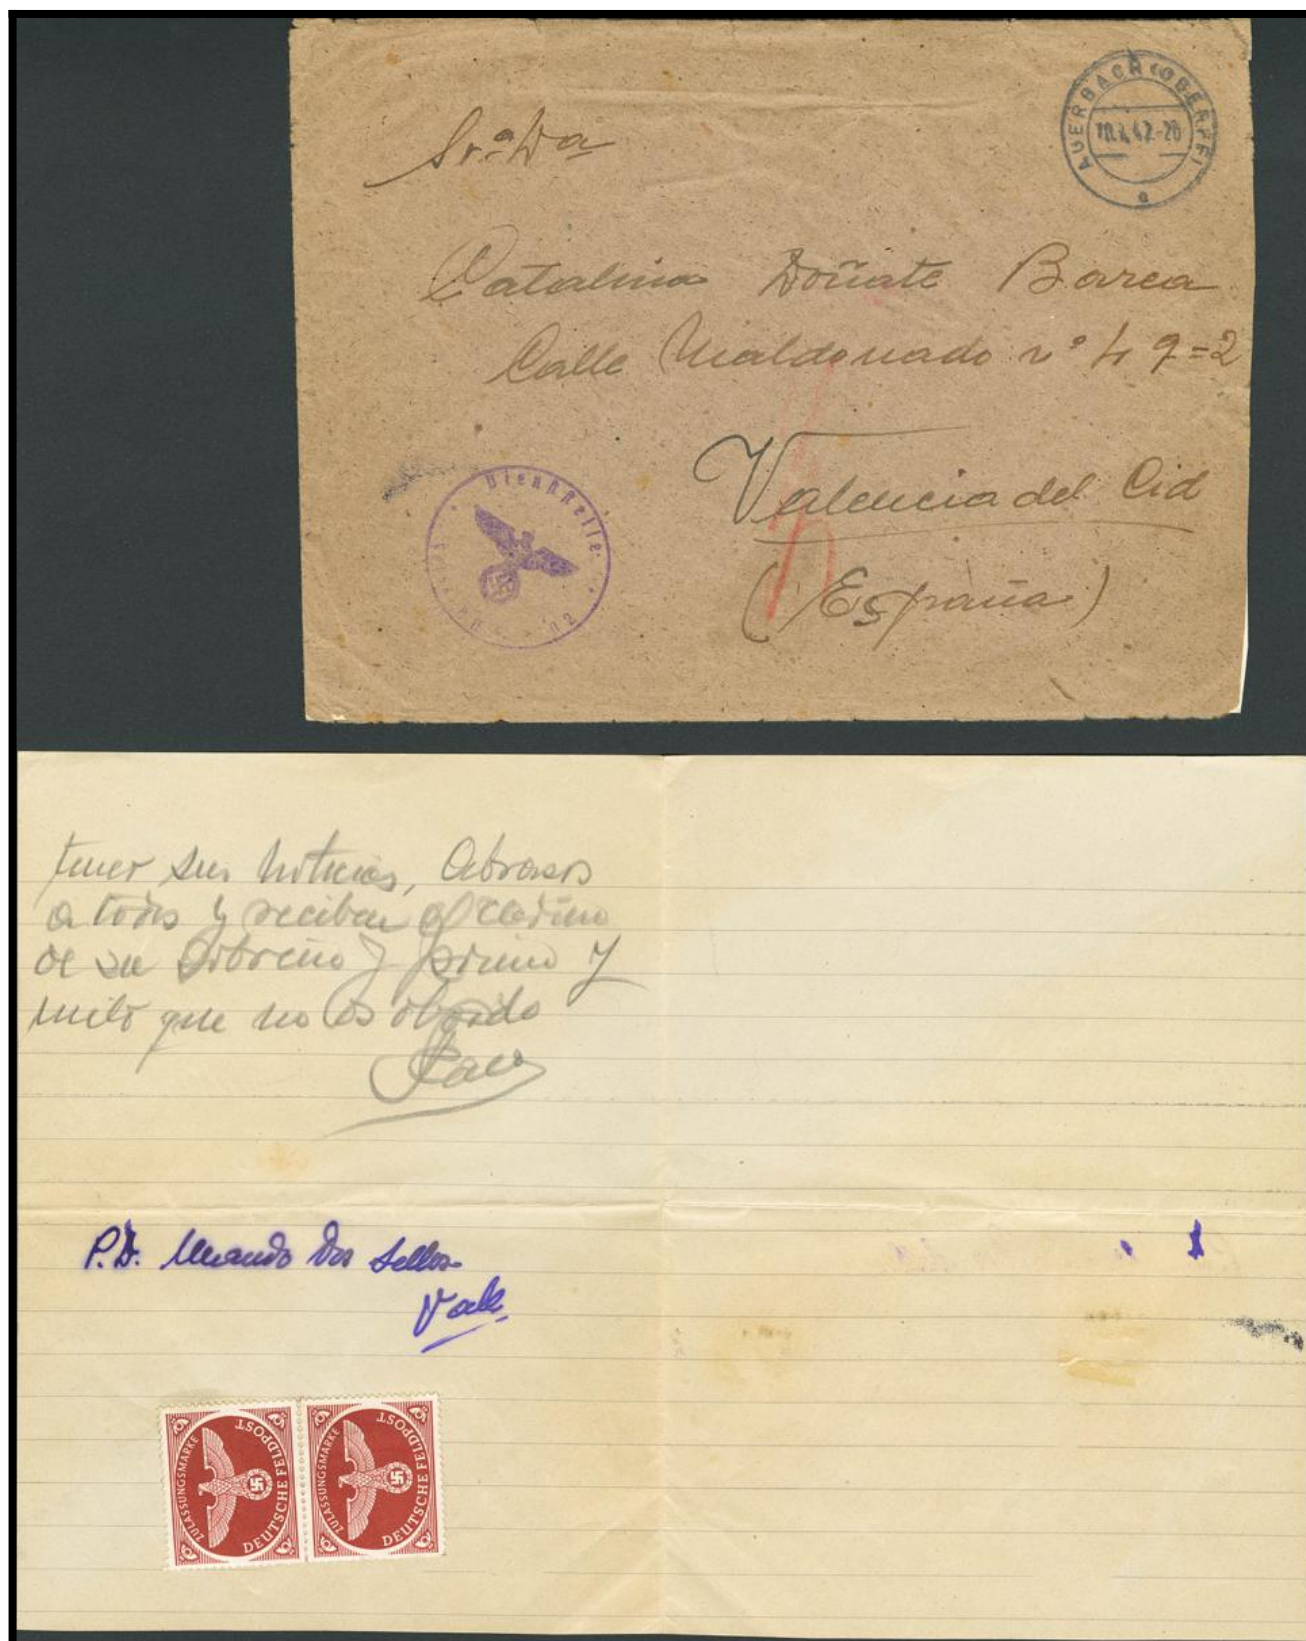 AUERBACH (OBERPF)
a
Sr.ª Dª
Catalina Doñate Barea
Calle Maldonado nº 49=2
Valencia del Cid
(España)
Dienststelle
tener sus noticias, Abrazos
a todos y reciban el
de su sobrino y primo y
nieto que no os olvida
P.D. Mando dos sellos-
Vale
ZULASSUNGSMARKE
DEUTSCHE FELDPOST
ZULASSUNGSMARKE
DEUTSCHE FELDPOST